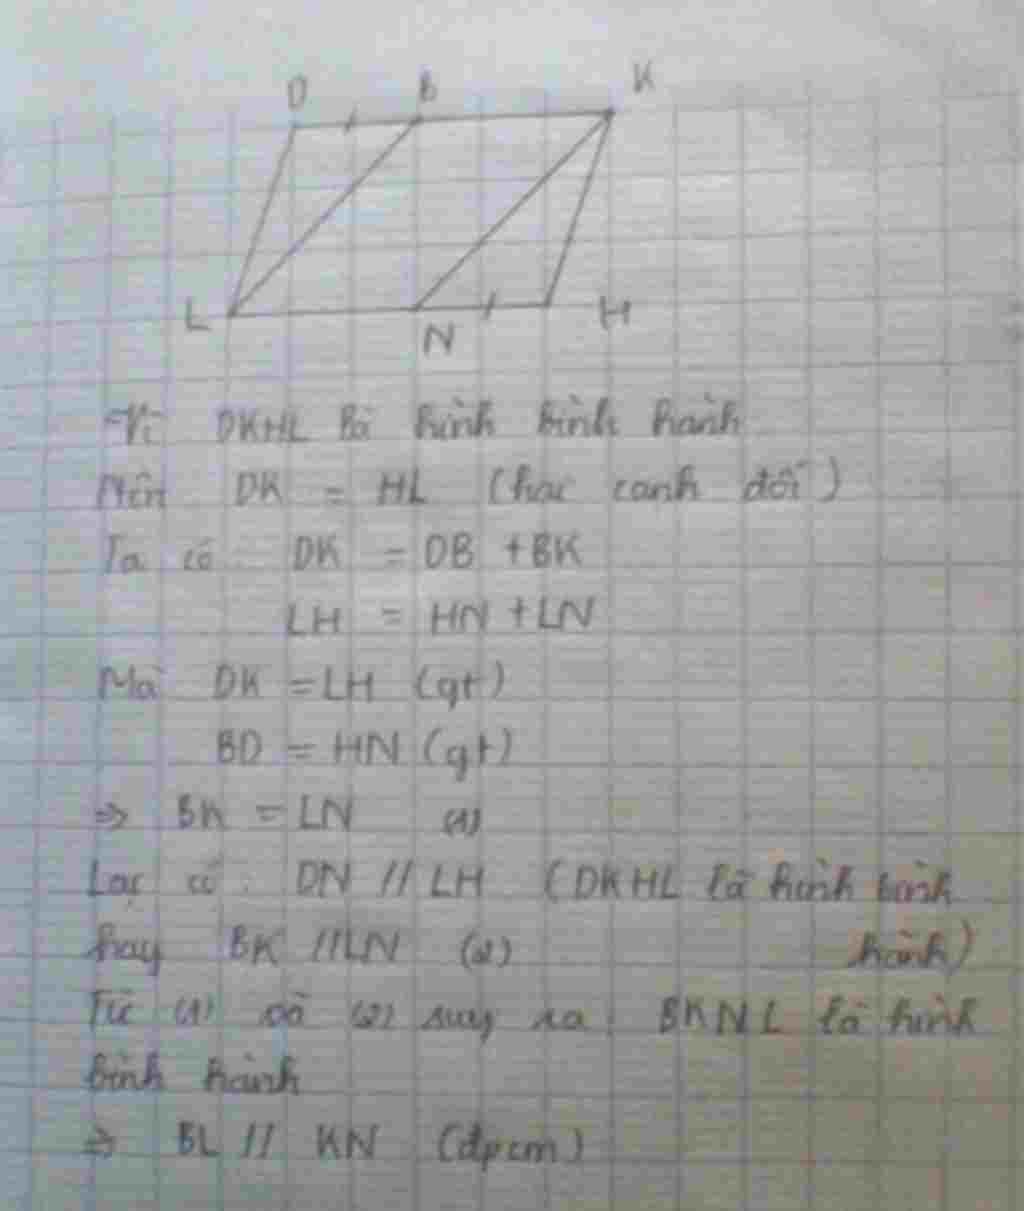 D B K
L N H
Vì DKHL là hình bình hành
Nên DK = HL (hai cạnh đối)
Ta có DK = DB + BK
LH = HN + LN
Mà DK = LH (gt)
BD = HN (gt)
=> BK = LN (1)
Lại có DN // LH (DKHL là hình bình
hay BK // LN (2) hành)
Từ (1) và (2) suy ra BKNL là hình
bình hành
=> BL // KN (đpcm)